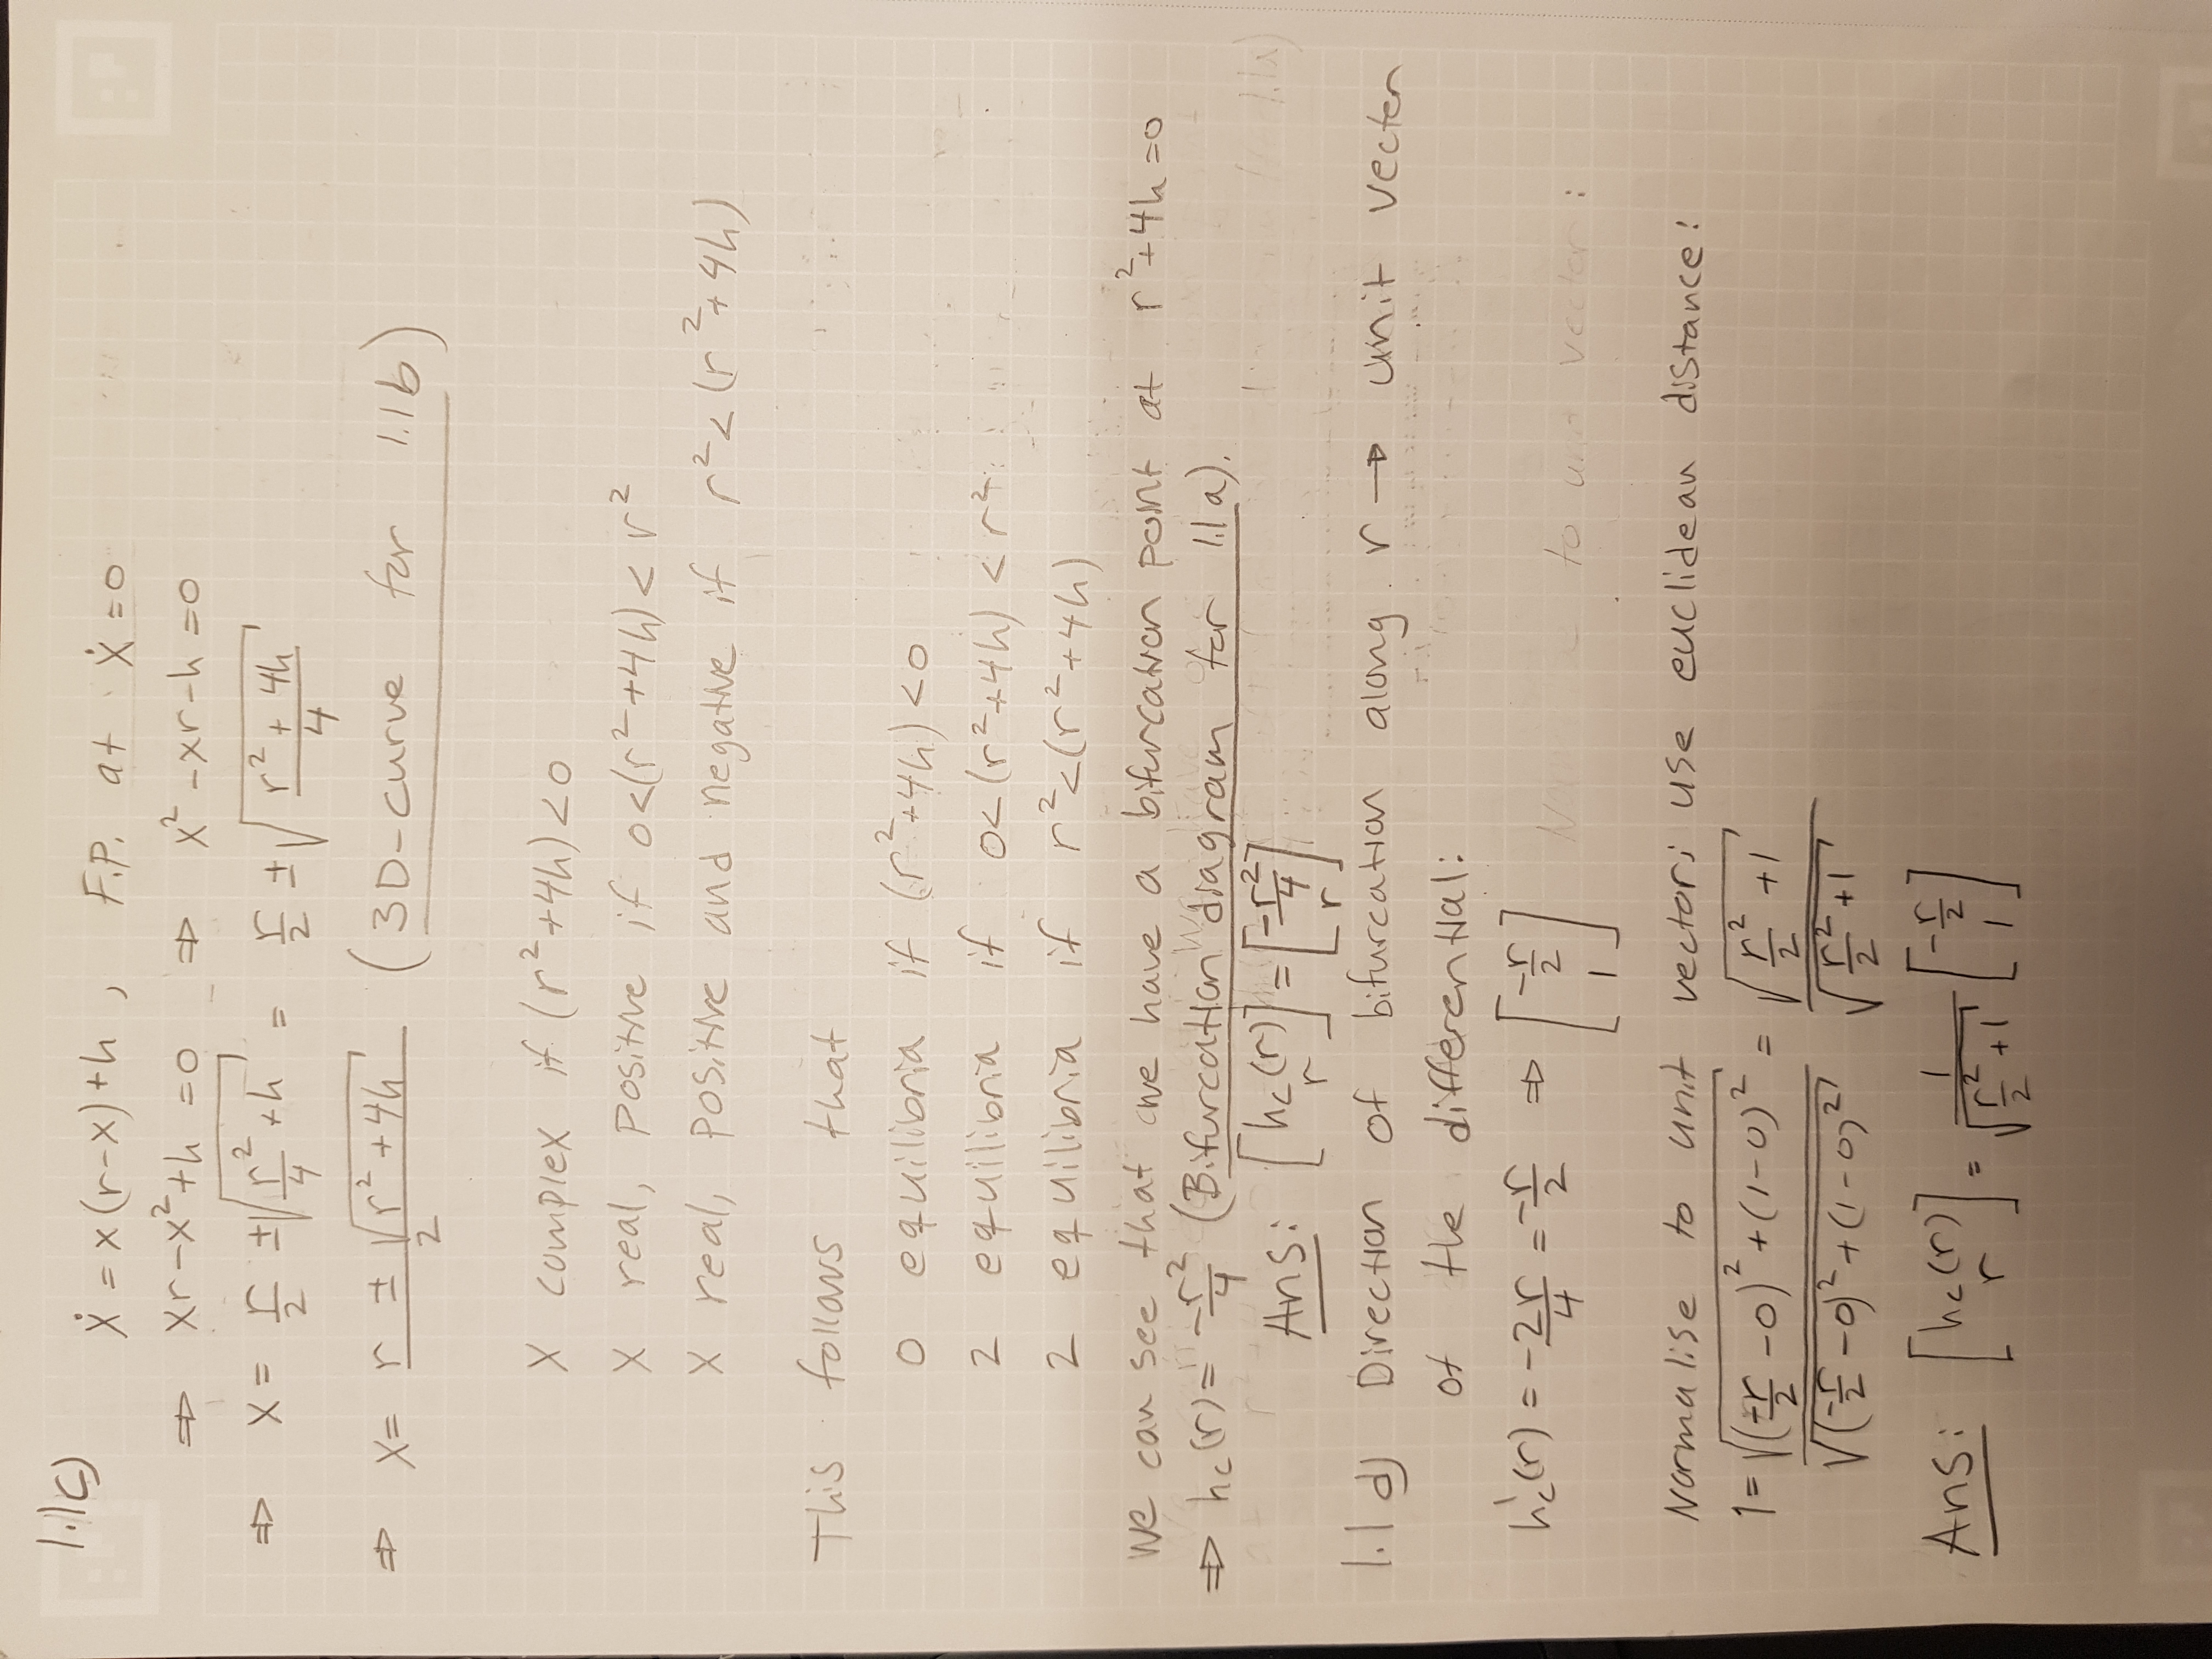 1.1c)
ẋ = x(r-x)+h , F.P. at ẋ = 0
⇒ xr-x²+h = 0 ⇒ x²-xr-h = 0
⇒ x = r/2 ± √(r²/4 + h) = r/2 ± √((r² + 4h)/4)
⇒ x = (r ± √(r²+4h))/2 (3D-curve for 1.1b)
x complex if (r²+4h)<0
x real, positive if 0<(r²+4h)<r²
x real, positive and negative if r²<(r²+4h)
This follows that
0 equilibria if (r²+4h)<0
2 equilibria if 0<(r²+4h)<r²
2 equilibria if r²<(r²+4h)
we can see that we have a bifurcation point at r²+4h=0
⇒ h_c(r) = -r²/4 (Bifurcation diagram for 1.1a).
Ans: [h_c(r) r] = [-r²/4 r]
1.1 d) Direction of bifurcation along r → unit vecter
of the differential:
h'_c(r) = -2r/4 = -r/2 ⇒ [-r/2 1] to unit vector:
Normalise to unit vector; use euclidean distance:
1 = √((-r/2 -0)² + (1-0)²) / √((-r/2 -0)² + (1-0)²) = √(r²/2 +1) / √(r²/2 +1)
Ans: [h_c(r) r] = 1/√(r²/2 +1) [-r/2 1]